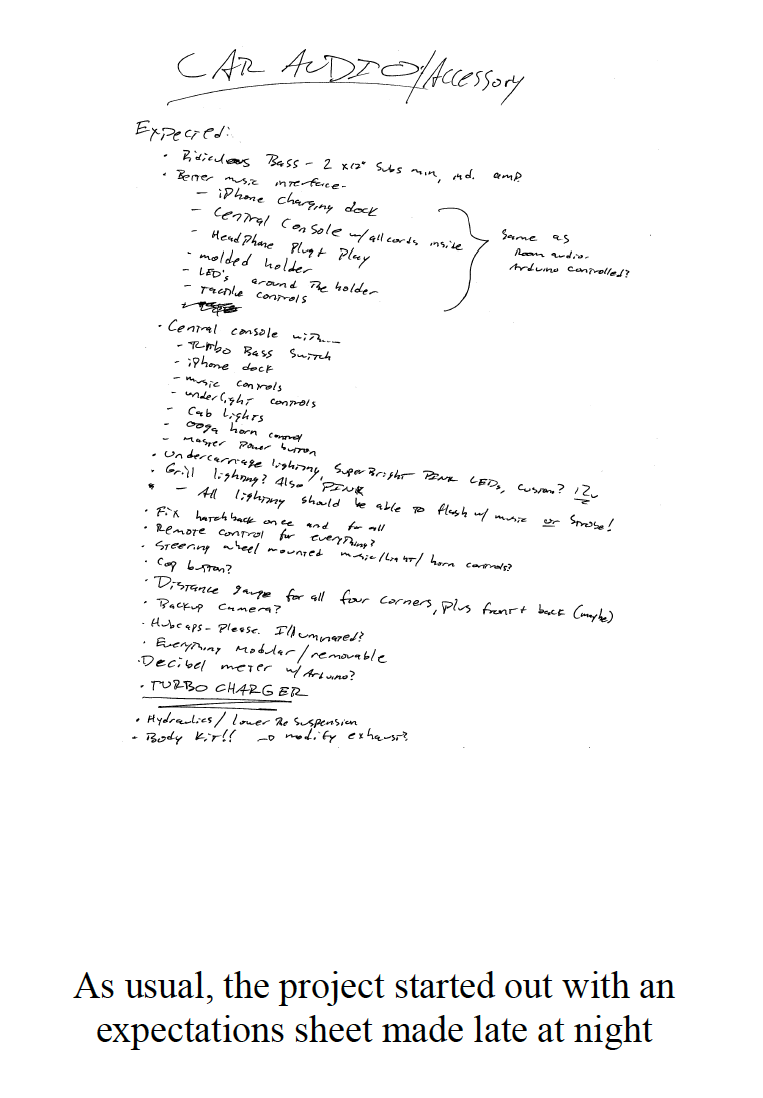 CAR AUDIO/Accessory
Expected:
• Ridiculous Bass - 2 x12" subs min, ind. amp.
• Better music interface-
- iPhone charging dock
- Central Console w/ all cords inside
- Headphone Plug + Play
- molded holder
- LED's around the holder
- Tactile controls
Same as
Room audio.
Arduino controlled?
• Central console with...
- Turbo Bass Switch
- iPhone dock
- music controls
- underlight controls
- Cab lights
- ooga horn control
- master power button
• Undercarriage lighting, Super Bright PINK LEDs, custom? 12v
• Grill lighting? Also PINK
* - All lighting should be able to flash w/ music or strobe!
• Fix hatchback once and for all
• Remote control for everything?
• Steering wheel mounted music/light/horn controls?
• Cop button?
• Distance gauge for all four corners, plus front + back (maybe)
• Backup Camera?
• Hubcaps - Please. Illuminated?
• Everything modular/removable
• Decibel meter w/ Arduino?
• TURBO CHARGER
• Hydraulics/lower the suspension
• Body Kit!! → modify exhaust?
As usual, the project started out with an
expectations sheet made late at night